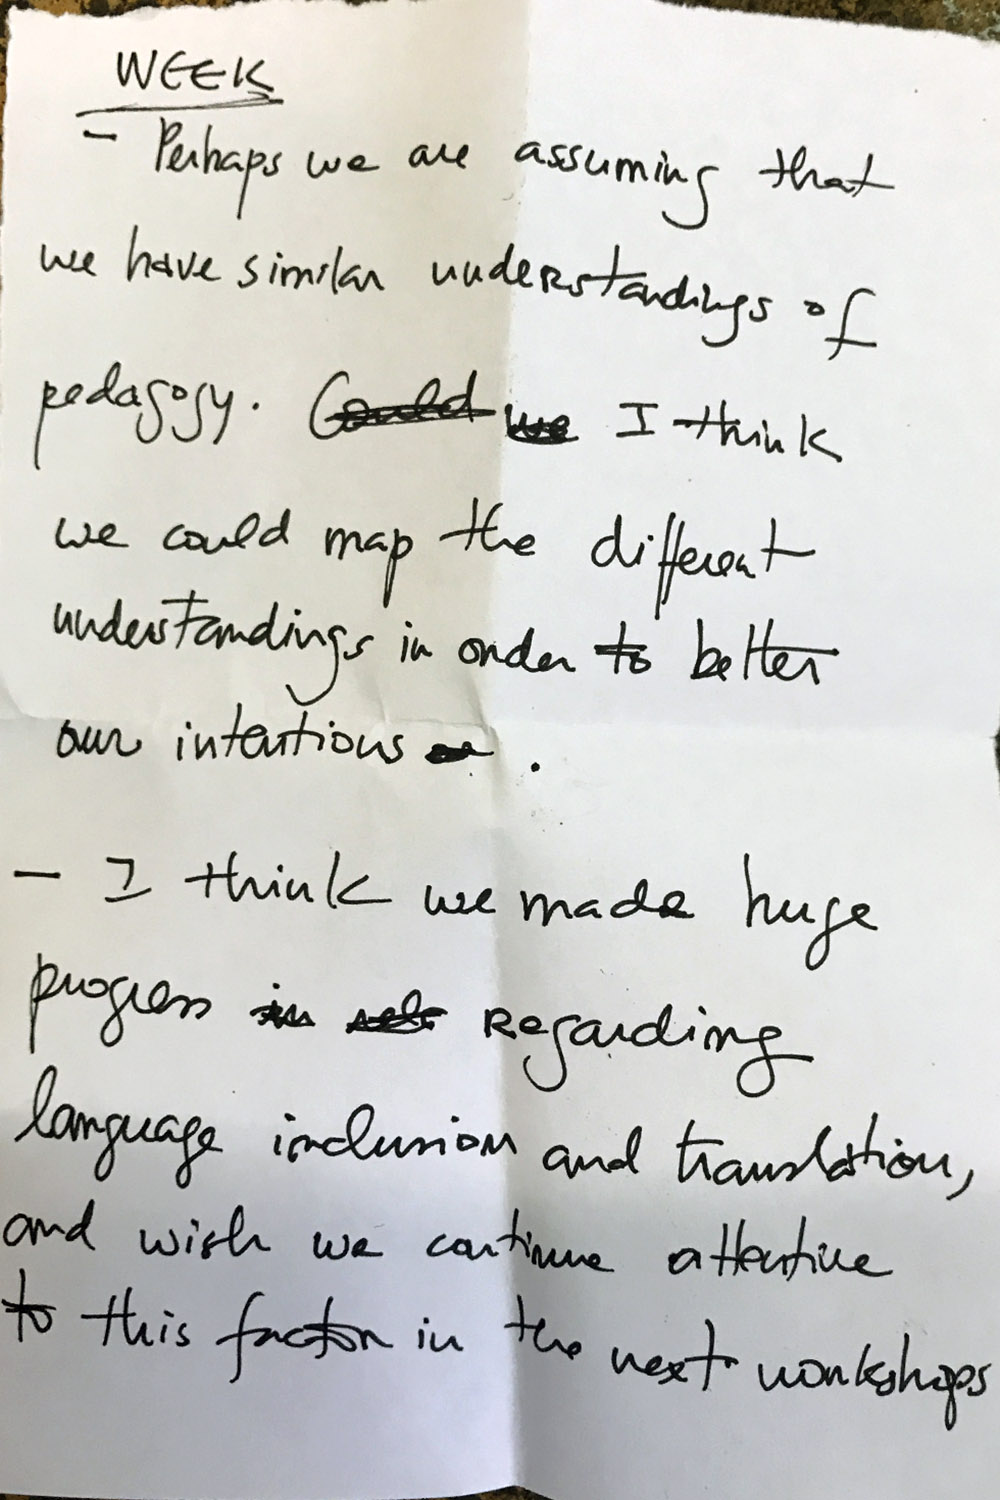 WEEK
- Perhaps we are assuming that
we have similar understandings of
pedagogy. Could we I think
we could map the different
understandings in order to better
our intentions .
- I think we made huge
progress in Regarding
language inclusion and translation,
and wish we continue attentive
to this factor in the next workshops